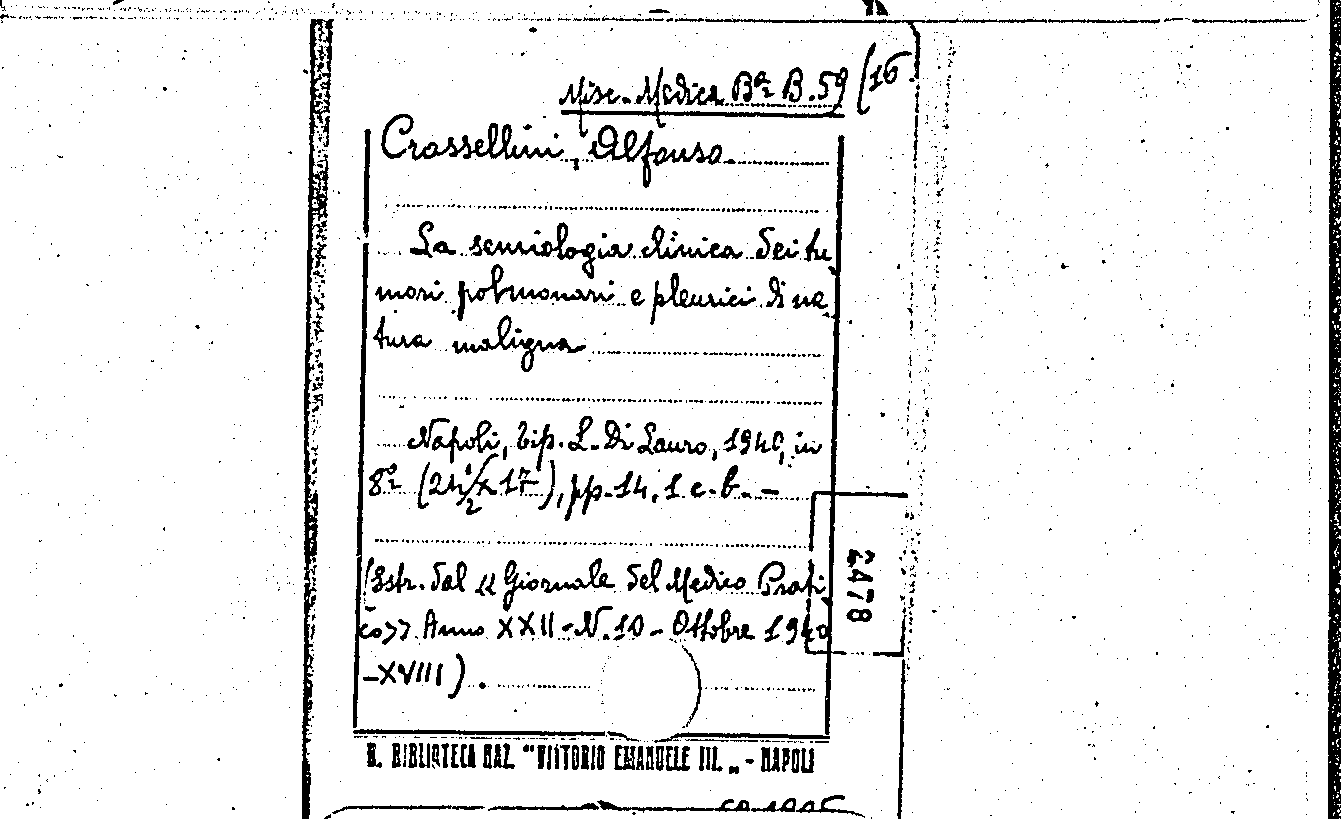 Misc. Medica Bª B. 59 (16.
Crassellini, Alfonso.
La semiologia clinica dei tu
mori polmonari e pleurici di na
tura maligna
Napoli, Tip. L. Di Lauro, 1940, in
8º (24 1/2 X 17), pp. 14, 1 c. b. —
(Estr. dal « Giornale del Medico Prati
co» Anno XXII - N. 10 - Ottobre 1940
-XVIII).
2478
R. BIBLIOTECA NAZ. "VITTORIO EMANUELE III. „ - NAPOLI